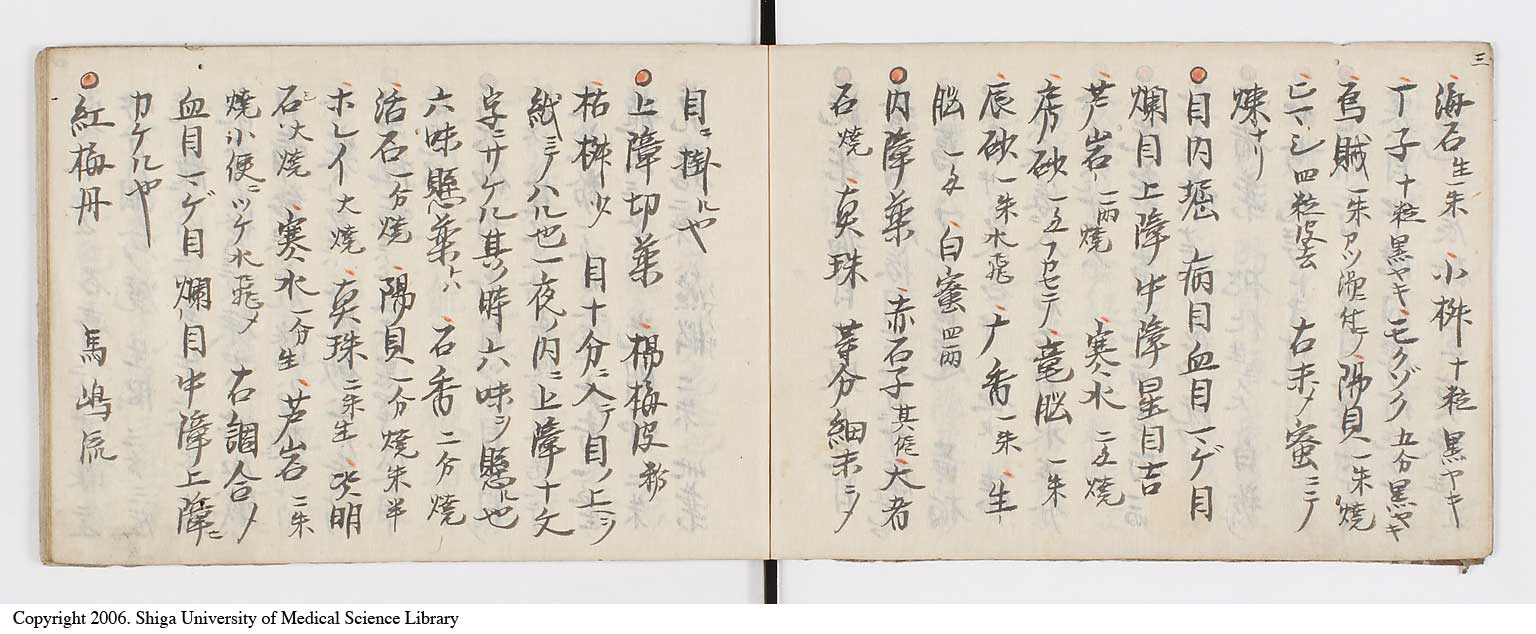 三
海石 生一朱 小椒 十粒 黒ヤキ
丁子 十粒 黒ヤキ モクゾク 五分 黒ヤキ
烏賊 一朱 陽貝 一朱 焼
四粒 皮去 右末〆蜜ニテ
煉ナリ
目内 病目血目一ゲ目
爛目上障中障星目吉
芦岩 二両 焼 寒水 二五 焼
竜脳 一朱
辰砂 一朱 水飛 一朱 生
脳 一匁 白蜜 四両
内障薬 赤石子 其佗大者
石 焼 真珠 等分細末ニ〆
目ニ掛ルヤ
上障切薬 楊梅皮 粉
枯 〆 目十分ニ入テ目ノ上ヲ
紙ミテハル也一夜ノ内ニ上障十文
字ニサケル其ノ時六味ヲ懸ル也
六味懸薬ハ 石香 二分 焼
活石 一分 焼 陽貝 一分 焼 朱半
ホレイ 大焼 真珠 二朱 生 明
石 大焼 寒水 一分 生 芦岩 二朱
焼小便ニツケ水飛〆 右調合〆
血目一ゲ目爛目中障上障ニ
カケルヤ
紅梅丹 馬嶋流
Copyright 2006. Shiga University of Medical Science Library